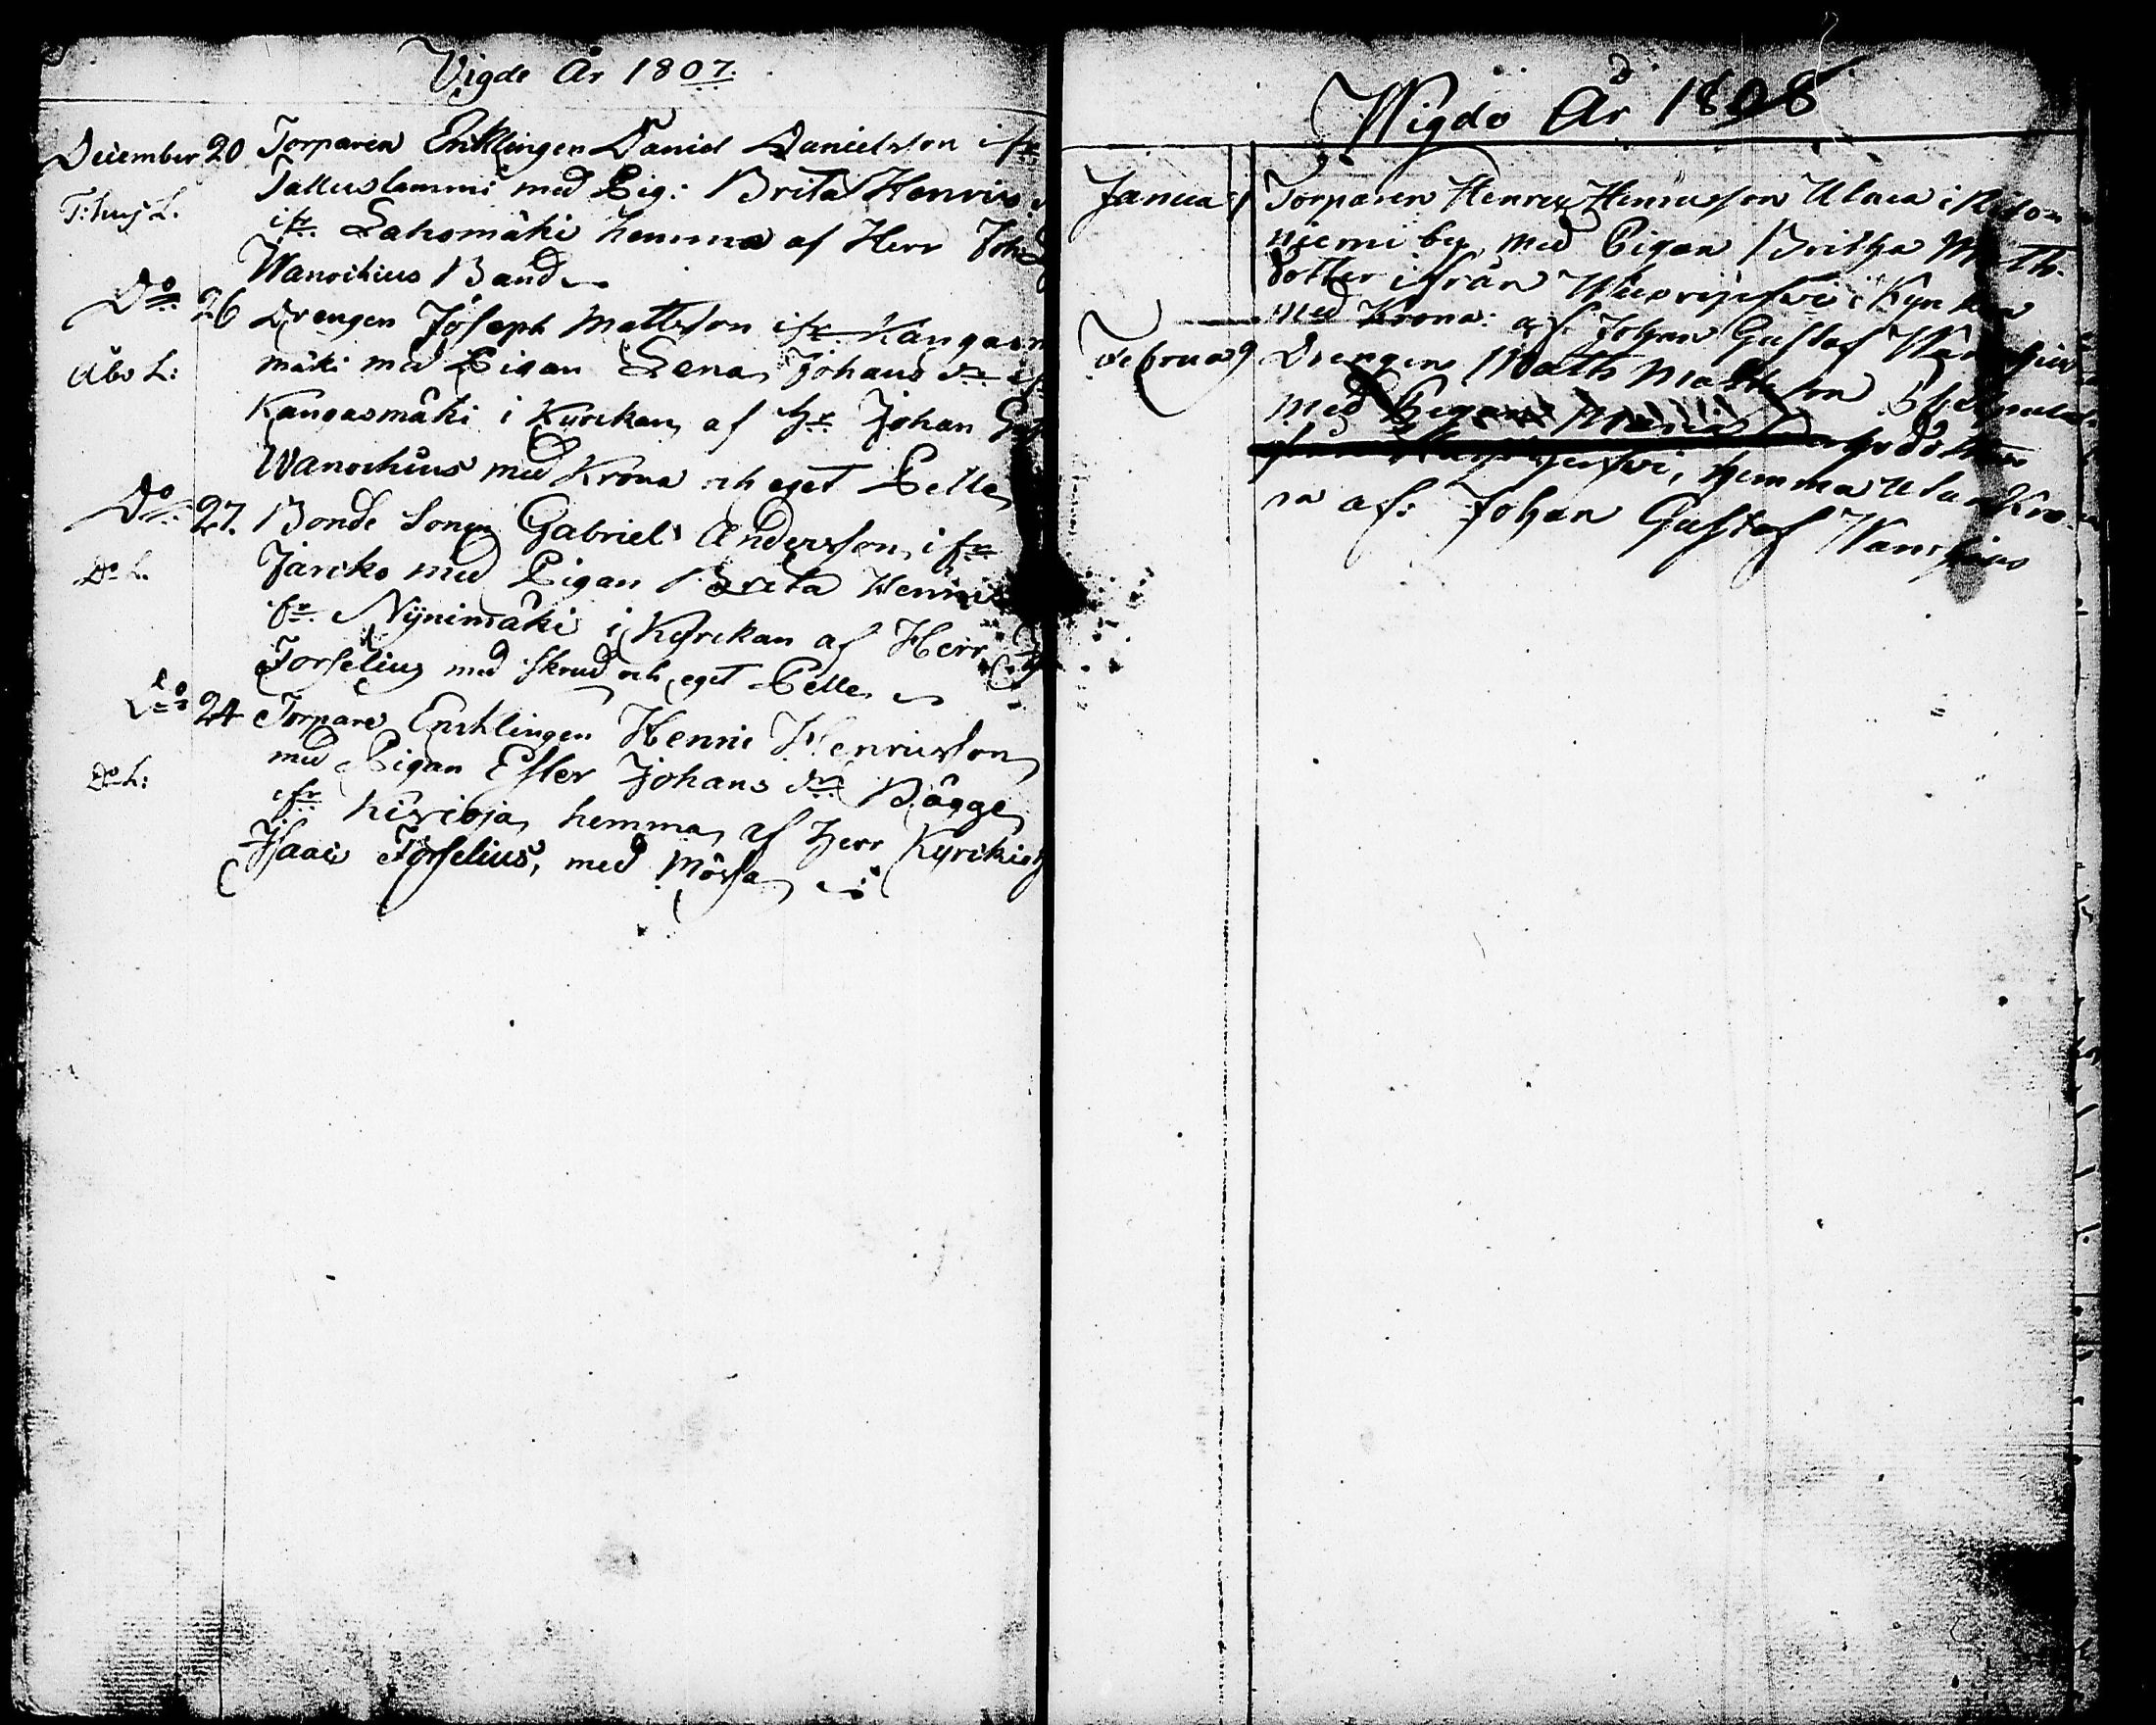 Vigde År 1807.
December 20 Torparen Enklingen Daniel Danielsson ifr
Talluslammi med Pig: Brita Henrics
T: hus L.
ifr. Lahomäki hemma af Herr Joh
Wanochius Band
Do 26 Drengen Joseph Mattsson ifr. Kangas
Åbo L: mäki med Pigan Lena Johans dr
Kangasmäki i Kyrckan, af Hr Johan
Wanochius med Krona och eget Pelle
Do 27. Bonde Sonen Gabriel Andersson, ifr
Do L. Jaricko med Pigan Brita Henrics
fr. Nÿnimäki i Kyrckan af Herr
Forselius med skrud och eget Pelle
Do 24 Torpare Encklingen Henric Henricsson
med Pigan Ester Johans dr Bågge
Do L: ifr Kivioja hemma, af Herr Kyrckioh
Isaac Forselius, med Mössa
Wigde År 1808
Janua 1 Torparen Henrik Henricsson i
niemi by, med Pigan Britha Math
dotter ifrån i Kyrckan
med Krona: af Johan Gustaf Wanochius
Februa 9 Drengen Math Mattsson
med Pigan Maria
hemma utan Kro
na af: Johan Gustaf Wanochius